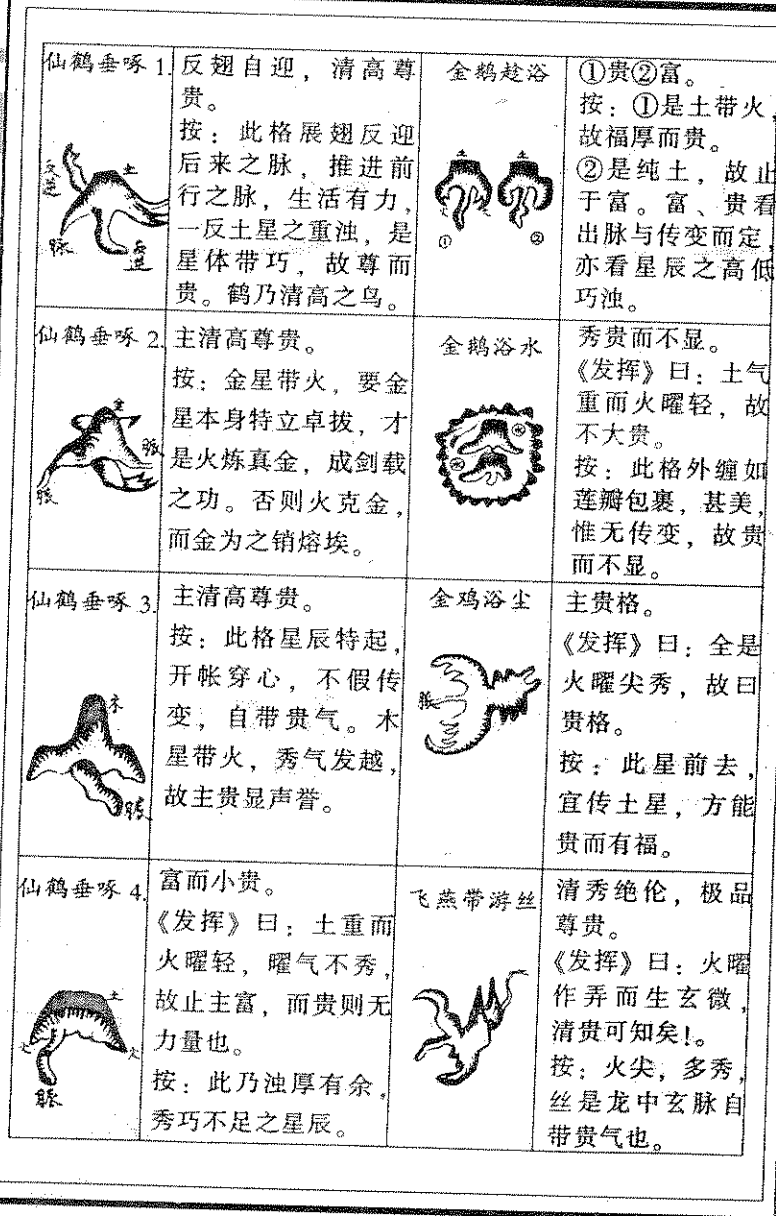 仙鹤垂啄 1.
土
反逆
脉
反逆
反翅自迎，清高尊
贵。
按：此格展翅反迎
后来之脉，推进前
行之脉，生活有力，
一反土星之重浊，是
星体带巧，故尊而
贵。鹤乃清高之鸟。
金鹅趁浴
土
土
火
火
①
②
①贵②富。
按：①是土带火，
故福厚而贵。
②是纯土，故止
于富。富、贵看
出脉与传变而定，
亦看星辰之高低
巧浊。
仙鹤垂啄 2.
金
脈
脈
主清高尊贵。
按：金星带火，要金
星本身特立卓拔，才
是火炼真金，成剑载
之功。否则火克金，
而金为之销熔埃。
金鹅浴水
秀贵而不显。
《发挥》曰：土气
重而火曜轻，故
不大贵。
按：此格外缠如
莲瓣包裹，甚美，
惟无传变，故贵
而不显。
仙鹤垂啄 3.
木
脈
主清高尊贵。
按：此格星辰特起，
开帐穿心，不假传
变，自带贵气。木
星带火，秀气发越，
故主贵显声誉。
金鸡浴尘
脈
主贵格。
《发挥》曰：全是
火曜尖秀，故曰
贵格。
按：此星前去，
宜传土星，方能
贵而有福。
仙鹤垂啄 4.
土
火
火
脈
富而小贵。
《发挥》曰：土重而
火曜轻，曜气不秀，
故止主富，而贵则无
力量也。
按：此乃浊厚有余，
秀巧不足之星辰。
飞燕带游丝
清秀绝伦，极品
尊贵。
《发挥》曰：火曜
作弄而生玄微，
清贵可知矣!。
按：火尖，多秀，
丝是龙中玄脉自
带贵气也。